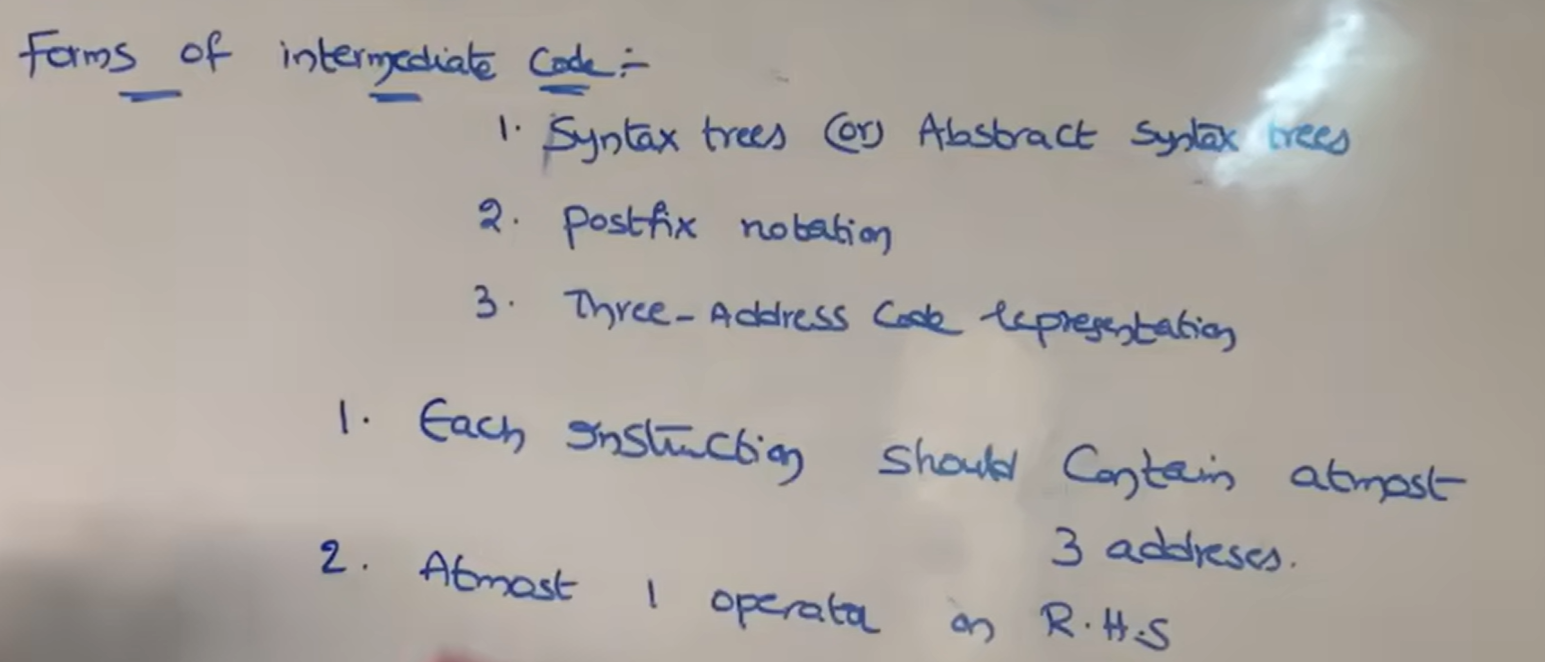 Forms of intermediate Code:-
1. Syntax trees (or) Abstract Syntax trees
2. Postfix notation
3. Three-Address Code representation
1. Each Instruction should Contain atmost
3 addreses.
2. Atmost 1 operator on R.H.S